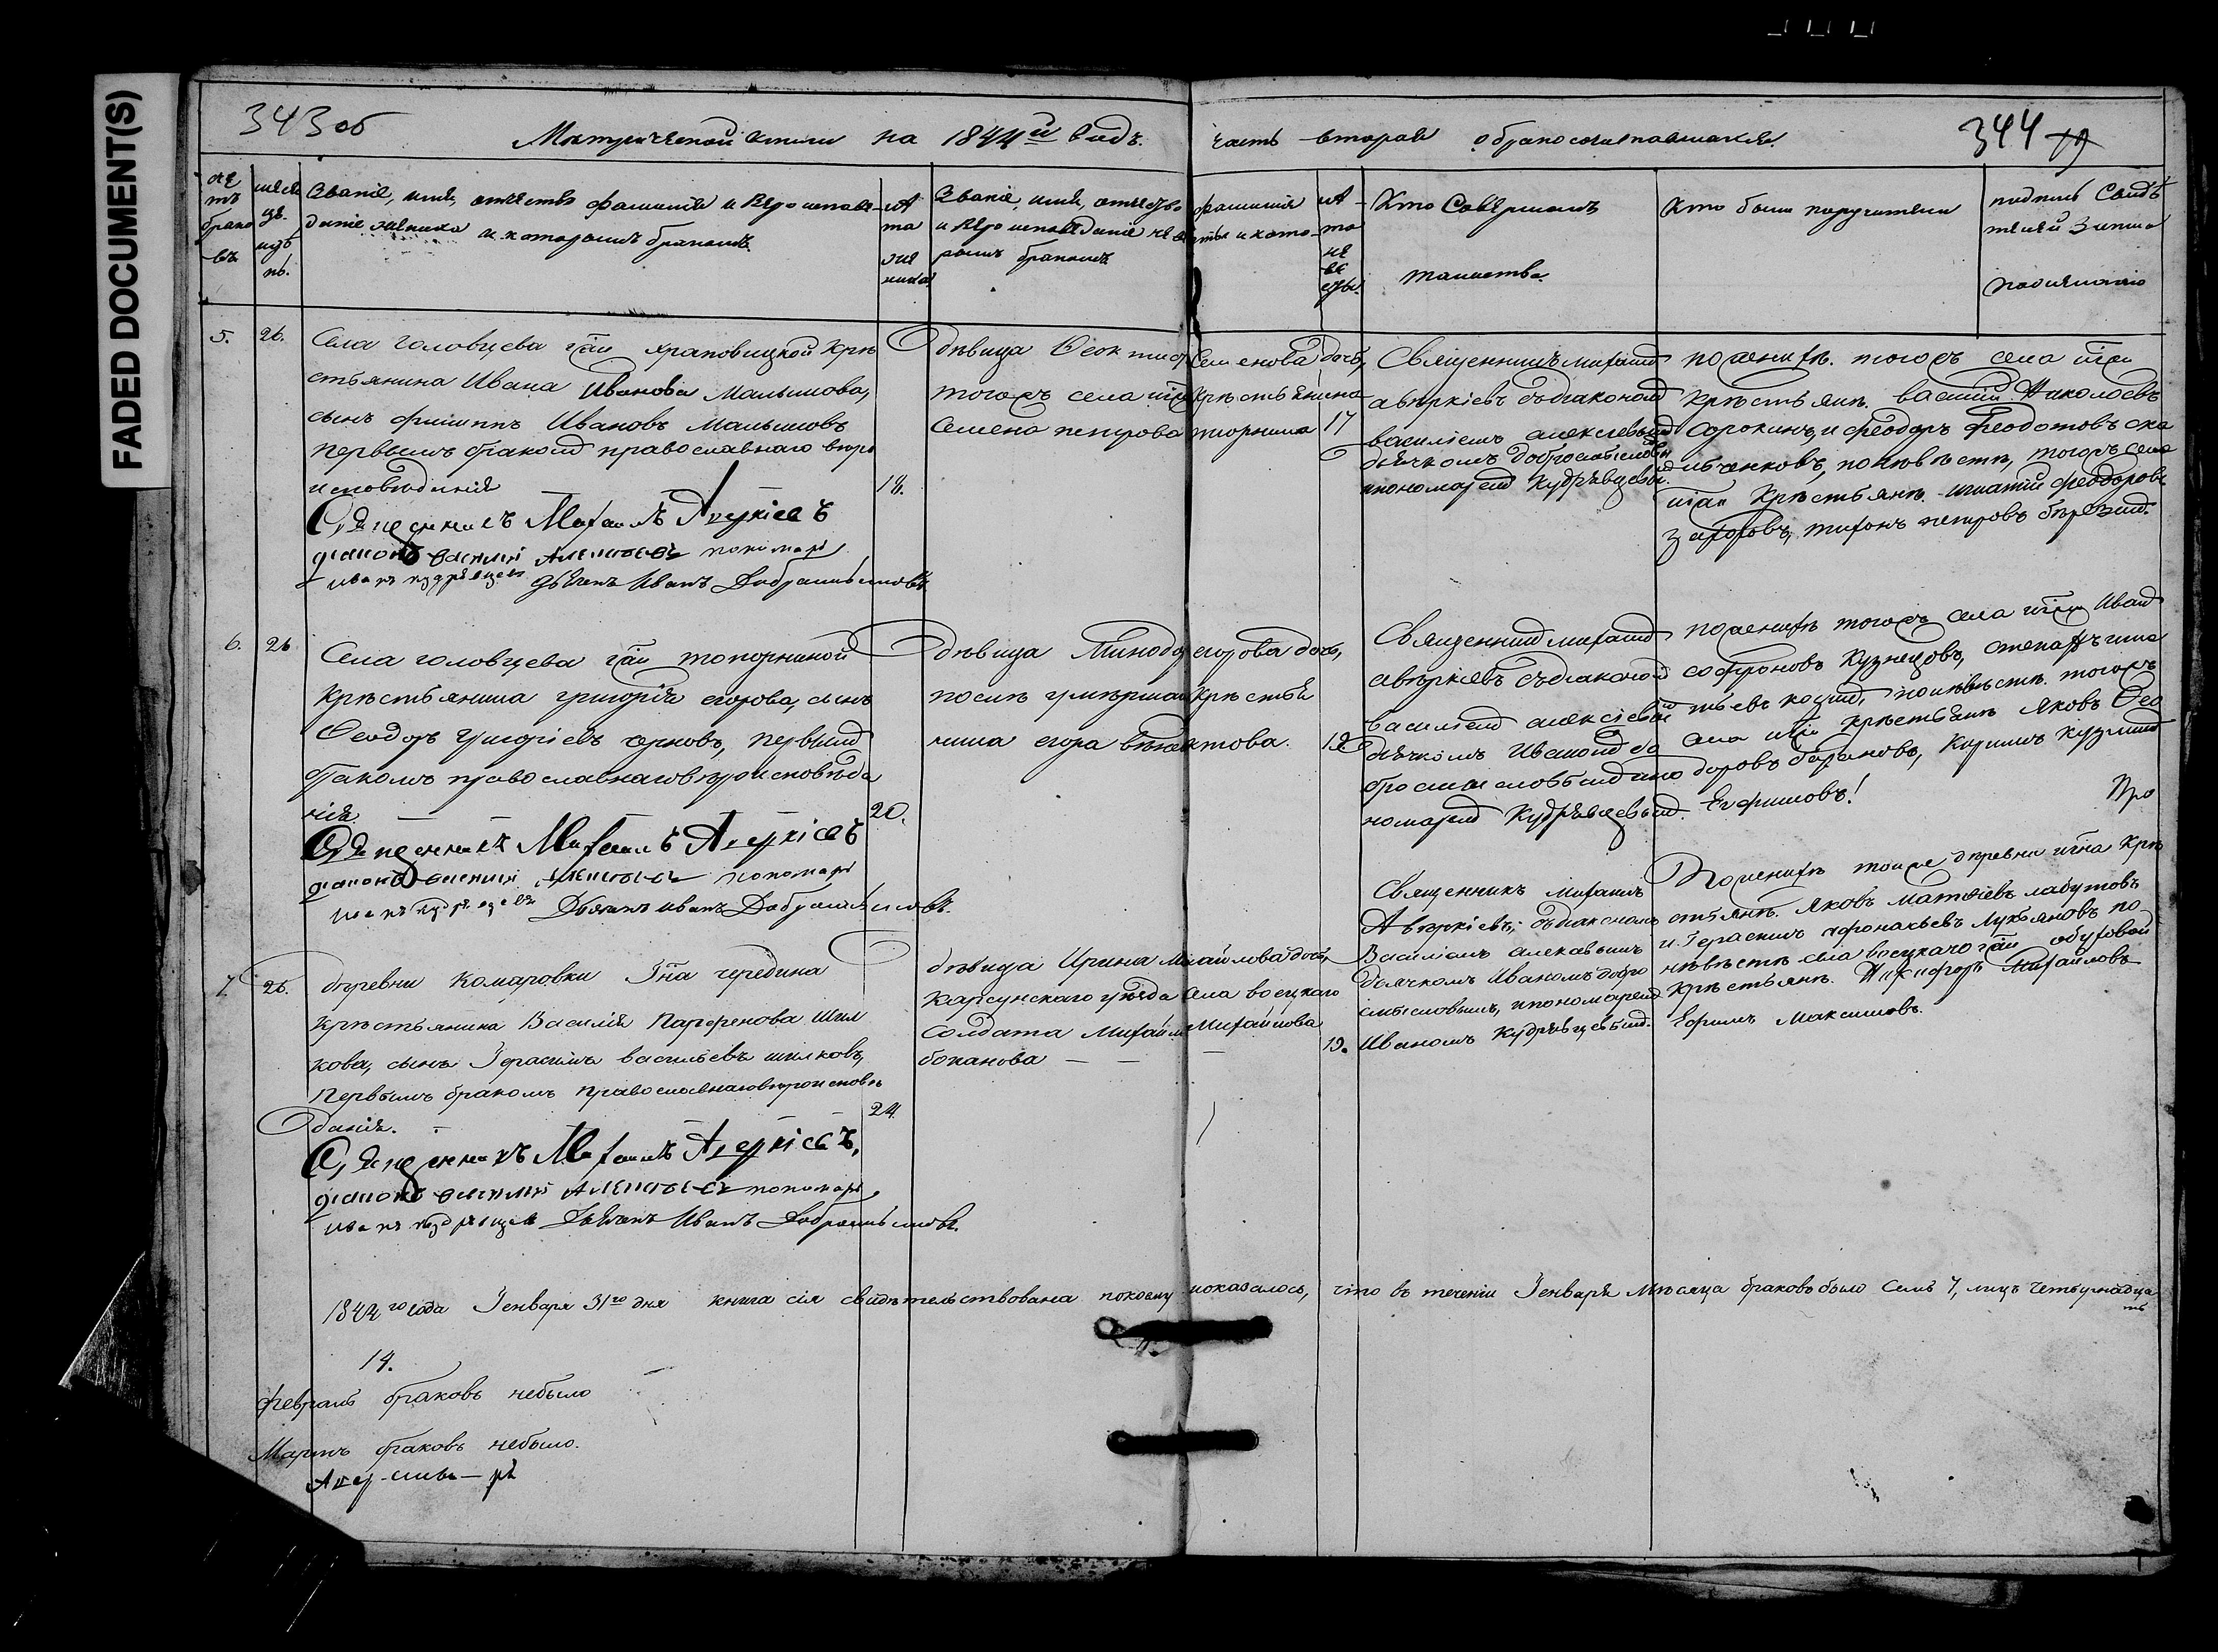 FADED DOCUMENT(S)
343 об
Метрической книги на 1844й годъ.
часть вторая о бракосочетавшихся.
344
Счетъ браковъ
Мѣсяцъ. и день.
Званіе, имя, отчество фамилія и вѣроисповѣ-
даніе жениха и которымъ бракомъ.
лѣта жениха
Званіе, имя, отчество фамилія
и вѣроисповѣданіе невѣсты и кото-
рымъ бракомъ
лѣта невѣсты.
Кто Совершалъ
таинство.
Кто были поручители
подпись Свидѣ
телей записи
по желанію
5.
26.
Села Головцева гжи Храповицкой Кре
стьянина Ивана Иванова Малышова,
сынъ Филиппъ Ивановъ Малышовъ
первымъ бракомъ православнаго вѣро
исповѣданія
18.
Священникъ Михаилъ Аверкіевъ
діаконъ Василий Алексѣевъ пономарь
Иванъ Кудрявцевъ дьячекъ Иванъ Добросмысловъ
дѣвица Ѳеоктиста Семенова дочь,
тогожъ села Крестьянина
Семена петрова 17
Священникъ михаилъ
аверкіевъ съ діакономъ
василіемъ алексѣевымъ
дьячкомъ Добросмысловымъ
пономаремъ Кудрявцевымъ.
по женихѣ. тогожъ села
крестьяне. василий Николаевъ
Сорокинъ, и Феодоръ Феодотовъ
по невѣстѣ, тогожъ села
Крестьяне. игнатий феодоровъ
захаровъ, тихонъ петровъ
6.
26
Села головцева гжи топорниной
крестьянина григорія егорова, сынъ
Ѳеодоръ Григорьевъ черновъ, первымъ
бракомъ православнаго вѣроисповѣда
нія.
20.
Священникъ Михаилъ Аверкіевъ
діаконъ василий Алексѣевъ пономарь
Иванъ Кудрявцевъ Дьячекъ Иванъ Добросмысловъ.
дѣвица Минодора егорова дочь,
послѣ умершаго Крестья
нина егора
Священникъ михаилъ
аверкіевъ съ діакономъ
василіемъ алексѣевымъ
дьячкомъ Иваномъ до
бросмысловымъ и по
номаремъ Кудрявцевымъ.
по женихѣ тогожъ села Иванъ
софроновъ Кузнецовъ, степанъ
по невѣстѣ. тогожъ
села крестьяне Яковъ Ѳео
доровъ барановъ, Кирилъ кузминъ
Ефимовъ!
Про
7.
26.
деревни Комаровки Гна чередина
крестьянина Василія Парфенова Шил
кова, сынъ Герасимъ васильевъ шилковъ,
первымъ бракомъ православнаго вѣроисповѣ
данія.
24.
Священникъ Михаилъ Аверкіевъ,
діаконъ василий Алексѣевъ пономарь
Иванъ Кудрявцевъ Дьячекъ Иванъ Добросмысловъ.
дѣвица Ирина Михайлова дочь,
Карсунскаго уѣзда села воецкаго
Солдата Михаила Михайлова
боканова
19.
Священникъ михаилъ
Аверкіевъ, съ діакономъ
Василіемъ алексѣевымъ
дьячкомъ Иваномъ добро
смысловымъ, и пономаремъ
Иваномъ Кудрявцевымъ.
По женихѣ тоиже деревни кре
стьяне. Яковъ матѳіевъ лабутовъ
и Герасимъ афонасьевъ Лукьяновъ по
невѣстѣ села воецкаго гжи
Крестьяне. Никифоръ Михайловъ
Ефимъ Максимовъ.
1844го года Генваря 31го дня книга сія свидѣтельствована по коему показалось, что въ теченіи Генваря Мѣсяца браковъ было Семь 7, лицъ четырнадца
ть
14.
Февраль браковъ небыло
Мартъ браковъ небыло.